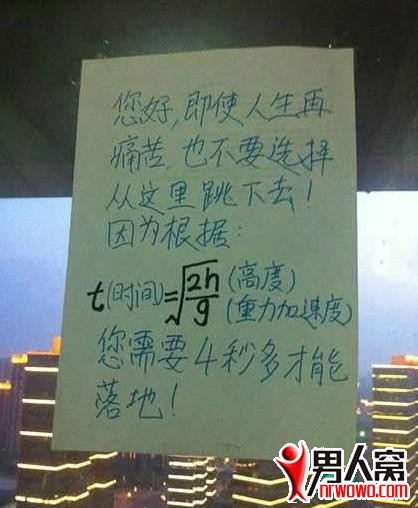 您好,即使人生再
痛苦,也不要选择
从这里跳下去!
因为根据:
t(时间)=√2h/g (高度)(重力加速度)
您需要4秒多才能
落地!
男人窝
nrwowo.com